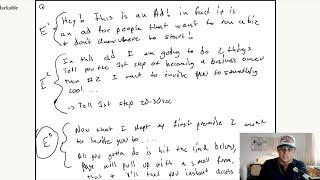 arkable
E1 Hey! This is an Ad! in fact it is
an ad for people that want to run a biz
+ don't know where to start!!
E2 In this ad I am going to do 2 things
Tell you the 1st step of becoming a business owner
then #2 I want to invite you to something
cool ...
→ Tell 1st step 20-30sec
Now that I kept my first promise I want
to invite you to ....
All you gotta do is hit the link below,
page will pull up with a small form,
that + I'll